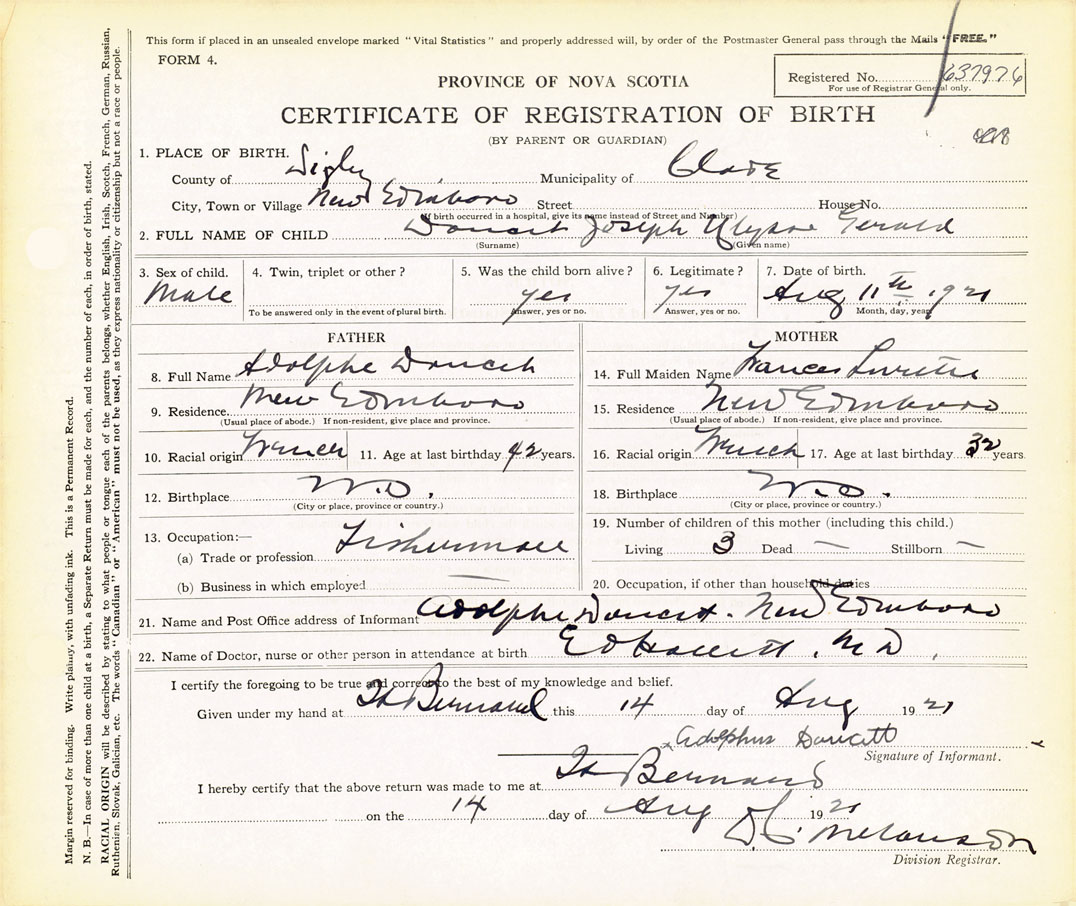 This form if placed in an unsealed envelope marked "Vital Statistics" and properly addressed will, by order of the Postmaster General pass through the Mails "FREE."
FORM 4.
Registered No. 637976
For use of Registrar General only.
PROVINCE OF NOVA SCOTIA
CERTIFICATE OF REGISTRATION OF BIRTH
(BY PARENT OR GUARDIAN)
1. PLACE OF BIRTH.
County of Digby Municipality of Clare
City, Town or Village New Edinboro Street House No.
(If birth occurred in a hospital, give its name instead of Street and Number)
2. FULL NAME OF CHILD Doucett Joseph Ulysse Gerald
(Surname) (Given name)
3. Sex of child. 4. Twin, triplet or other? 5. Was the child born alive? 6. Legitimate? 7. Date of birth.
Male yes yes Aug 11th 1921
To be answered only in the event of plural birth. Answer, yes or no. Answer, yes or no. Month, day, year
FATHER
8. Full Name Adolphe Doucett
9. Residence. New Edinboro
(Usual place of abode.) If non-resident, give place and province.
10. Racial origin French 11. Age at last birthday 42 years.
12. Birthplace
(City or place, province or country.)
13. Occupation:—
(a) Trade or profession Fisherman
(b) Business in which employed —
MOTHER
14. Full Maiden Name Frances
15. Residence New Edinboro
(Usual place of abode.) If non-resident, give place and province.
16. Racial origin French 17. Age at last birthday 32 years
18. Birthplace
(City or place, province or country.)
19. Number of children of this mother (including this child.)
Living 3 Dead — Stillborn —
20. Occupation, if other than household duties
21. Name and Post Office address of Informant Adolphe Doucett. New Edinboro
22. Name of Doctor, nurse or other person in attendance at birth M D
I certify the foregoing to be true and correct to the best of my knowledge and belief.
Given under my hand at St Bernard this 14 day of Aug 1921
Adolphus Doucett
Signature of Informant.
I hereby certify that the above return was made to me at St Bernard
on the 14 day of Aug 1921
Melanson
Division Registrar.
Margin reserved for binding. Write plainly, with unfading ink. This is a Permanent Record.
N. B.—In case of more than one child at a birth, a Separate Return must be made for each, and the number of each, in order of birth, stated.
RACIAL ORIGIN will be described by stating to what people or tongue each of the parents belongs, whether English, Irish, Scotch, French, German, Russian,
Ruthenian, Slovak, Galician, etc. The words "Canadian" or "American" must not be used, as they express nationality or citizenship but not a race or people.